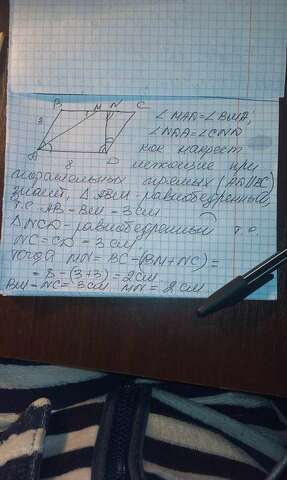 B M N C
3
A 8 D
∠MAD = ∠BMA,
∠NDA = ∠CND
как накрест
лежащие при
параллельных прямых (AD||BC)
значит, △ABM - равнобедренный,
т.е. AB = BM = 3 см
△NCD - равнобедренный т.е.
NC = CD = 3 см
Тогда MN = BC - (BM + NC) =
= 8 - (3+3) = 2 см
BM = NC = 3 см MN = 2 см